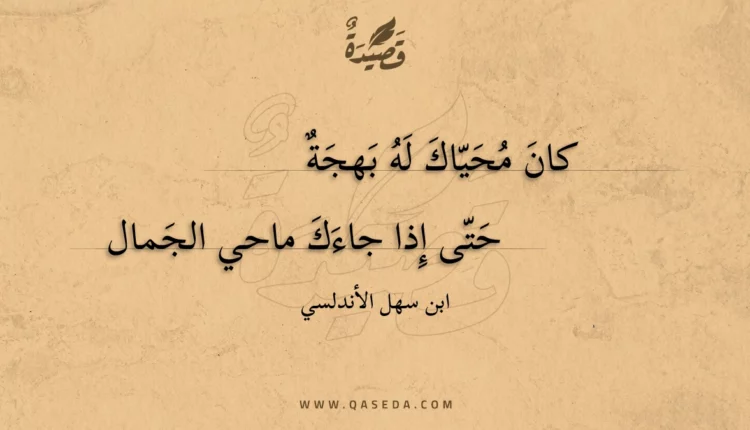 قَصِيْدَةٌ
كانَ مُحَيّاكَ لَهُ بَهجَةٌ
حَتّى إِذا جاءَكَ ماحي الجَمال
ابن سهل الأندلسي
WWW.QASEDA.COM